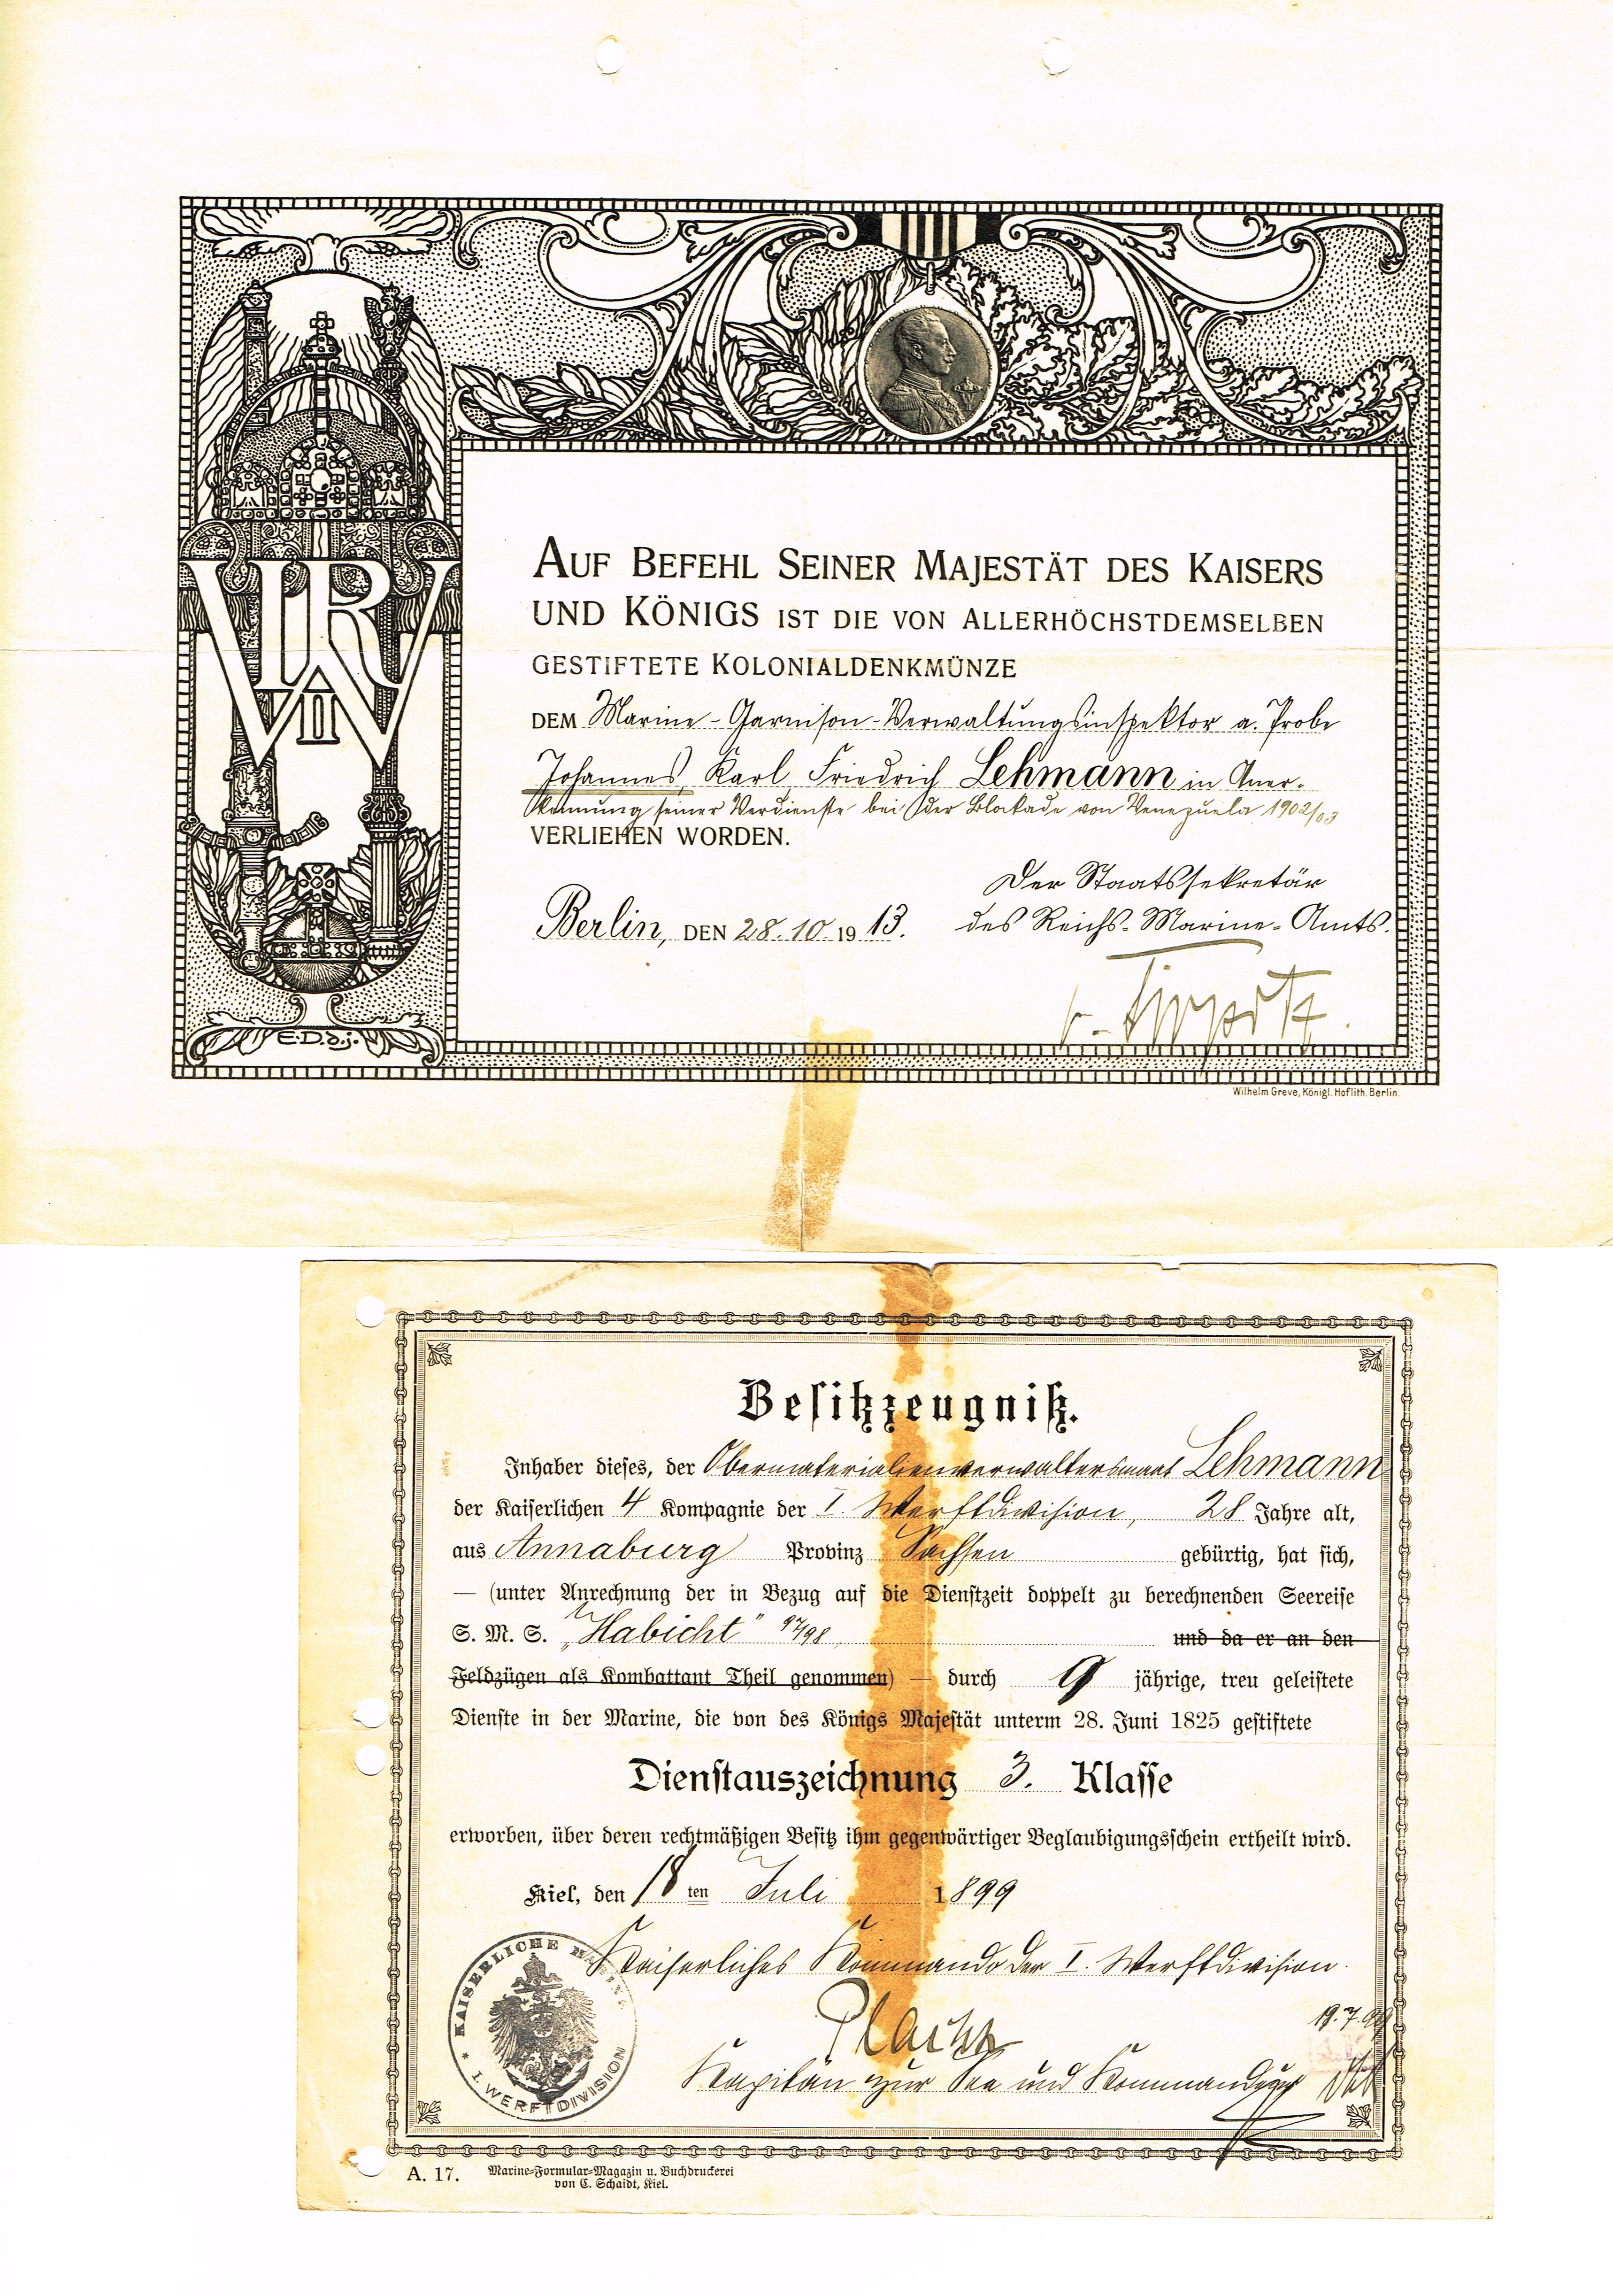 W II R
E.D.d.j.
AUF BEFEHL SEINER MAJESTÄT DES KAISERS
UND KÖNIGS IST DIE VON ALLERHÖCHSTDEMSELBEN
GESTIFTETE KOLONIALDENKMÜNZE
DEM Marine-Garnison-Verwaltungsinspektor a. Probe
Johannes, Karl, Friedrich Lehmann in Aner-
kennung seiner Verdienste bei der Blockade von Venezuela 1902/03
VERLIEHEN WORDEN.
Der Staatssekretär
Berlin, DEN 28.10.1913. des Reichs-Marine-Amts.
v. Tirpitz.
Wilhelm Greve, Königl. Hoflith. Berlin.
Besitzzeugniß.
Inhaber dieses, der Obermaterialienverwaltersmaat Lehmann
der Kaiserlichen 4 Kompagnie der I. Werftdivision, 28 Jahre alt,
aus Annaburg Provinz Sachsen gebürtig, hat sich,
— (unter Anrechnung der in Bezug auf die Dienstzeit doppelt zu berechnenden Seereise
S. M. S. „Habicht" 97/98, und da er an den
Feldzügen als Kombattant Theil genommen) — durch 9 jährige, treu geleistete
Dienste in der Marine, die von des Königs Majestät unterm 28. Juni 1825 gestiftete
Dienstauszeichnung 3. Klasse
erworben, über deren rechtmäßigen Besitz ihm gegenwärtiger Beglaubigungsschein ertheilt wird.
Kiel, den 18ten Juli 1899
Kaiserliches Kommando der I. Werftdivision.
KAISERLICHE MARINE
* I. WERFTDIVISION
19.7.99
Kapitän zur See und Kommandeur
A. 17. Marine-Formular-Magazin u. Buchdruckerei
von C. Schaidt, Kiel.